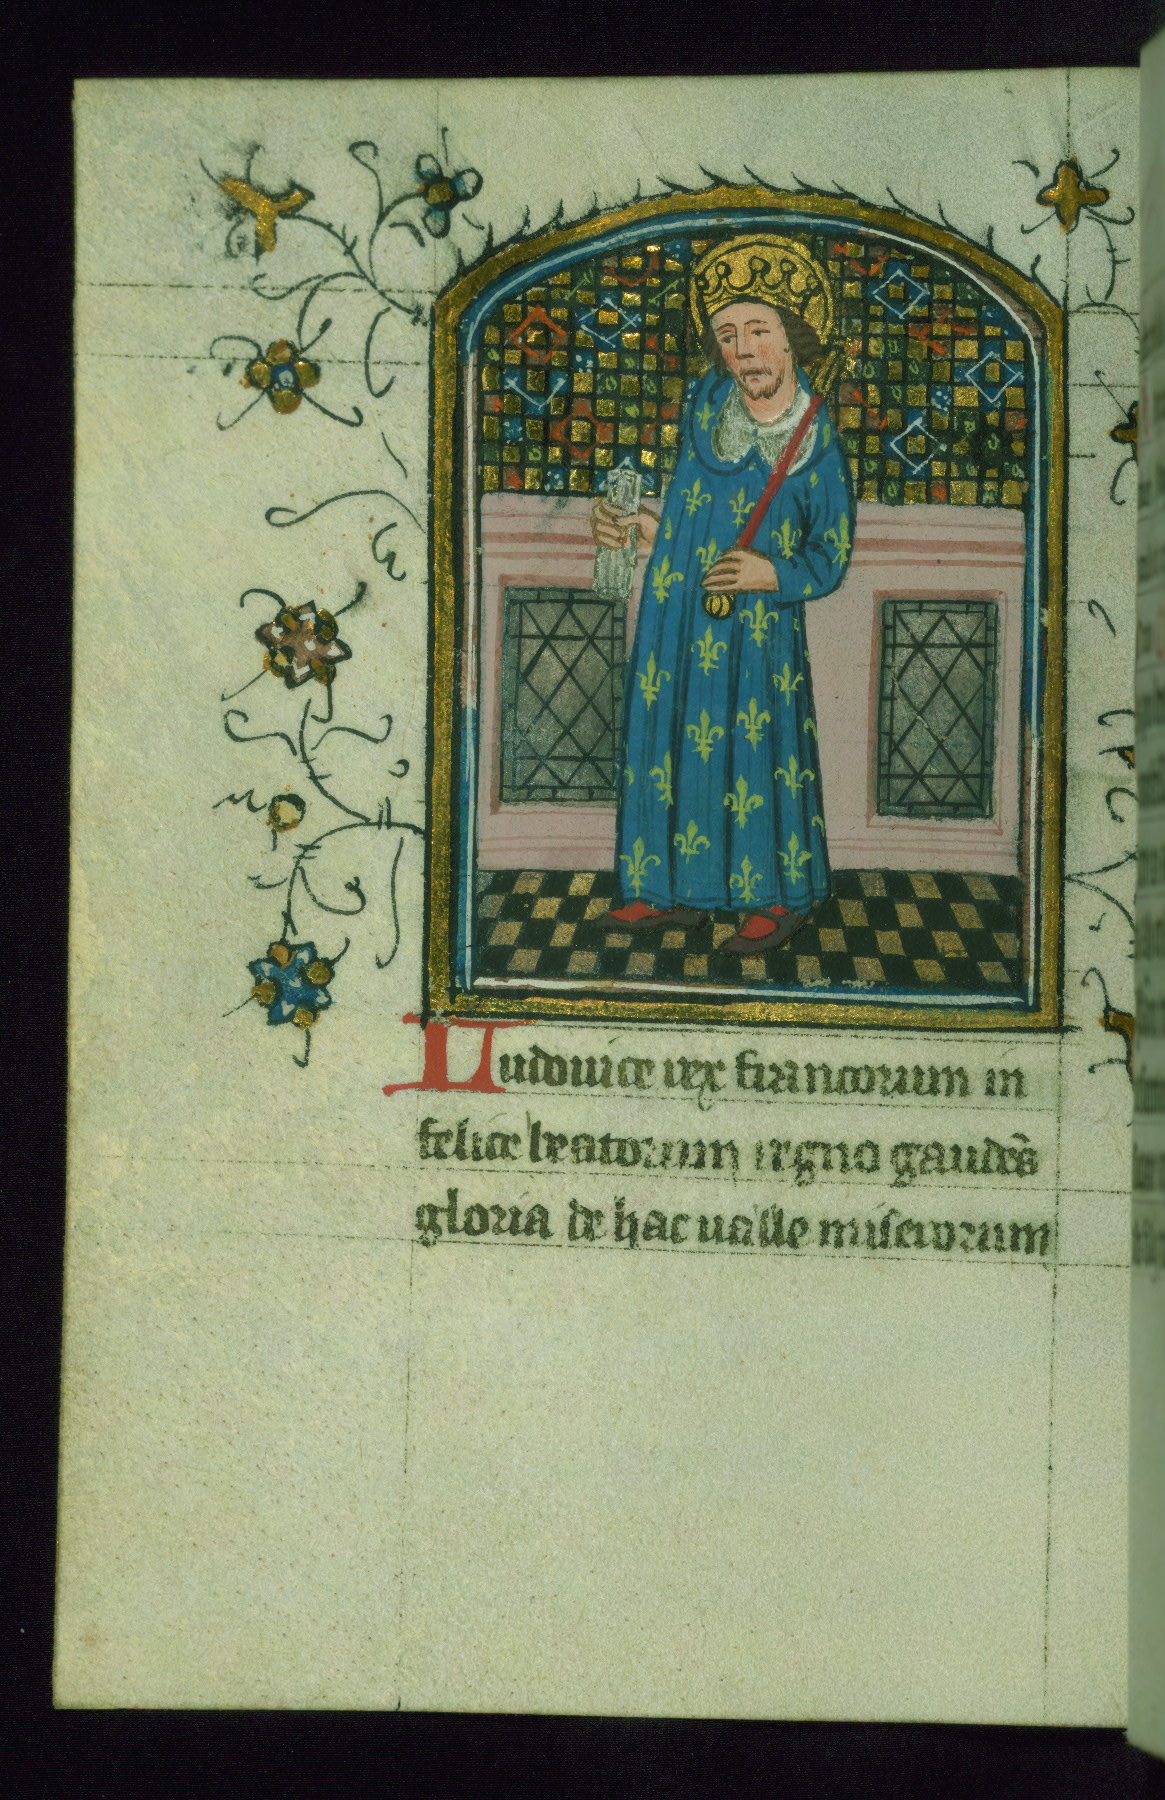 Ludouice rex francorum in
felice beatorum regno gaudẽs
gloria de hac ualle miserorum